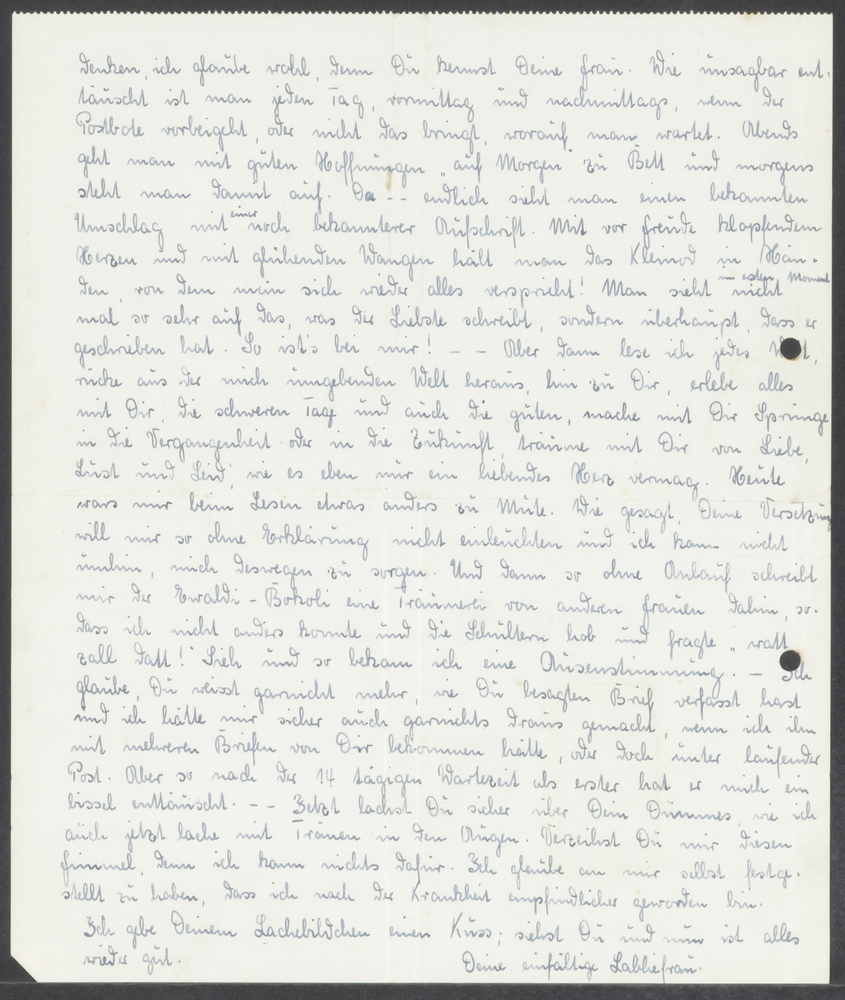 denken, ich glaube wohl, denn Du kennst Deine Frau. Wie unsagbar ent-
täuscht ist man jeden Tag, vormittag und nachmittags, wenn der
Postbote vorbeigeht, oder nicht das bringt, worauf man wartet. Abends
geht man mit guten Hoffnungen „auf Morgen" zu Bett und morgens
steht man damit auf. Da -- endlich sieht man einen bekannten
Umschlag mit einer noch bekannterer Aufschrift. Mit vor Freude klopfendem
Herzen und mit glühenden Wangen hält man das Kleinod in Hän-
den, von dem man sich wieder alles verspricht! Man sieht im ersten Moment nicht
mal so sehr auf das, was der Liebste schreibt, sondern überhaupt, dass er
geschrieben hat. So ist's bei mir! -- Aber dann lese ich jedes
rücke aus der mich umgebenden Welt heraus, hin zu Dir, erlebe alles
mit Dir, die schweren Tage und auch die guten, mache mit Dir Sprünge
in die Vergangenheit oder in die Zukunft, träume mit Dir von Liebe,
Lust und Leid, wie es eben nur ein liebendes Herz vermag. Heute
wars mir beim Lesen etwas anders zu Mute. Wie gesagt, Deine Versetzung
will mir so ohne Erklärung nicht einleuchten und ich kann nicht
umhin, mich deswegen zu sorgen. Und dann so ohne Anlauf schreibt
mir der Ewaldi-Bokoli eine Träumerei von anderen Frauen dahin, so-
dass ich nicht anders konnte und die Schultern hob und fragte „watt
zall datt!" Sieh und so bekam ich eine Stimmung. - Ich
glaube, Du weisst garnicht mehr, wie Du besagten Brief verfasst hast
und ich hätte mir sicher auch garnichts draus gemacht, wenn ich ihn
mit mehreren Briefen von Dir bekommen hätte, oder doch unter laufender
Post. Aber so nach der 14 tägigen Wartezeit als erster hat er mich ein
bissel enttäuscht. -- Jetzt lachst Du sicher über Dein Dummes, wie ich
auch jetzt lache mit Tränen in den Augen. Verzeihst Du mir diesen
Fimmel, denn ich kann nichts dafür. Ich glaube an mir selbst festge-
stellt zu haben, dass ich nach der Krankheit empfindlicher geworden bin.
Ich gebe Deinem Lachebildchen einen Kuss; siehst Du und nun ist alles
wieder gut.
Deine einfältige Labliefrau.